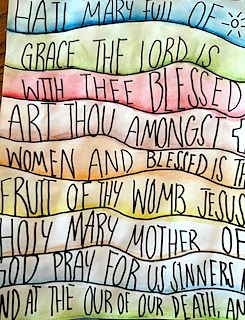 HAIL MARY FULL OF
GRACE THE LORD IS
WITH THEE BLESSED
ART THOU AMONGST
WOMEN AND BLESSED IS TH
FRUIT OF THY WOMB JESUS
HOLY MARY MOTHER OF
GOD PRAY FOR US SINNERS
ND AT THE OUR OF OUR DEATH, AM